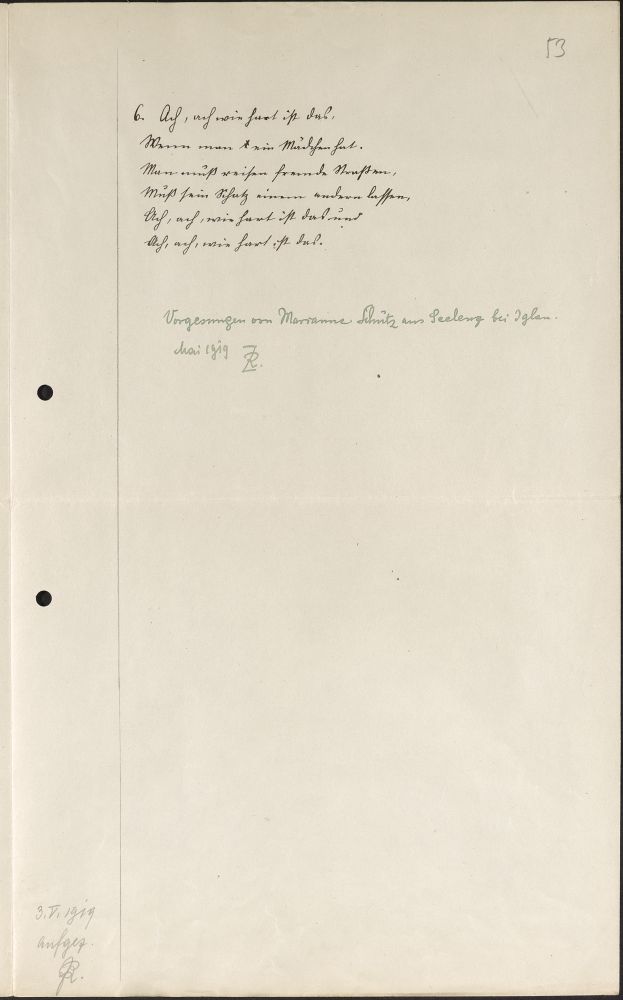 53
6. Ach, ach wie hart ist das,
Wenn man ein Mädchen hat.
Man muß reisen fremde Straßen,
Muß sein Schatz einem andern lassen,
Ach, ach, wie hart ist das und
Ach, ach, wie hart ist das.
Vorgesungen von Marianne Schütz aus Seelenz bei Iglau.
Mai 1919 R.
3. V. 1919
aufgez.
R.